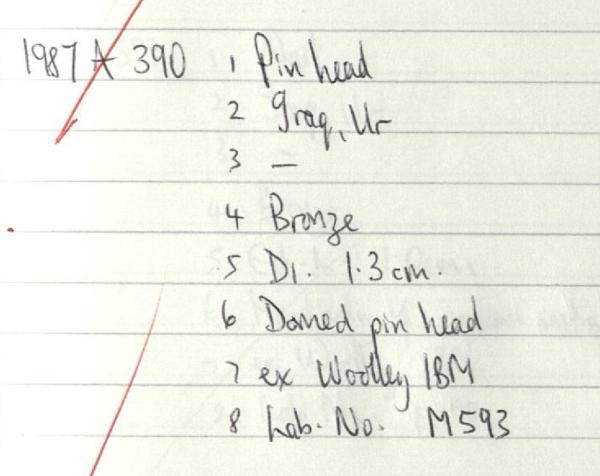 1987 A 390 1 Pin head
2 Iraq, Ur
3 —
4 Bronze
5 DI. 1.3 cm.
6 Domed pin head
7 ex Woolley IBM
8 Lab. No. M593